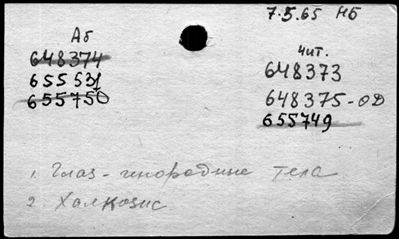 7.5.65 НБ
Аб
648374
655531
655750
чит.
648373
648375-ОД
655749
1. Глаз - инородные тела
2. Халкозис